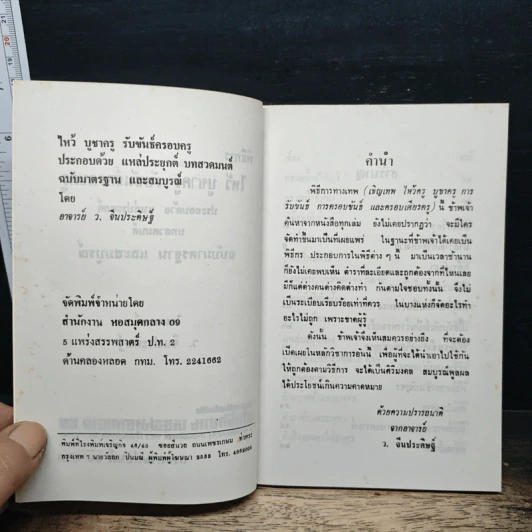 ไหว้ บูชาครู รับขันธ์ครอบครู
ประกอบด้วย แหล่ประยุกต์ บทสวดมนต์
ฉบับมาตรฐาน และสมบูรณ์
โดย
อาจารย์ ว. จีนประดิษฐ์
จัดพิมพ์จำหน่ายโดย
สำนักงาน หอสมุดกลาง 09
5 แพร่งสรรพศาสตร์ ป.ท. 2
ด้านคลองหลอด กทม. โทร. 2241662
พิมพ์ที่โรงพิมพ์เจริญกิจ 46/45 ซอยสีนวย ถนนเพชรเกษม ท่าพระ
กรุงเทพฯ นายวัลลภ ปิ่นมณี ผู้พิมพ์ผู้โฆษณา
คำนำ
พิธีการทางเทพ (เชิญเทพ ไหว้ครู บูชาครู การ
รับขันธ์ การครอบขันธ์ และครอบเศียรครู) นี้ ข้าพเจ้า
ค้นหาจากหนังสือทุกเล่ม ยังไม่เคยปรากฏว่า จะมีใคร
จัดทำขึ้นมาเป็นที่เผยแพร่ ในฐานะที่ข้าพเจ้าได้เคยเป็น
พิธีกร ประกอบการในพิธีต่าง ๆ นี้ มาเป็นเวลาช้านาน
ก็ยังไม่เคยพบเห็น ตำราที่ละเอียดและถูกต้องจากที่ไหนเลย
มีก็แต่ต่างคนต่างคิดต่างทำ กันตามใจชอบทั้งนั้น จึงไม่
เป็นระเบียบเรียบร้อยเท่าที่ควร ในบางแห่งก็คิดอะไรทำ
อะไรไม่ถูก เพราะขาดผู้รู้
ดังนั้น ข้าพเจ้าจึงเห็นสมควรอย่างยิ่ง ที่จะต้อง
เปิดเผยในหลักวิชาการอันนี้ เพื่อผู้ที่จะได้นำเอาไปใช้กัน
ให้ถูกต้องตามวิธีการ จะได้เป็นศิริมงคล สมบูรณ์พูลผล
ได้ประโยชน์เกินความคาดหมาย
ด้วยความปรารถนาดี
จากอาจารย์
ว. จีนประดิษฐ์